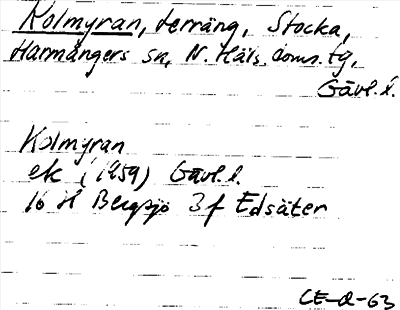 Kolmyran, terräng, Stocka,
Harmångers sn, N. Häls. doms. tg,
Gävl. l.
Kolmyran
ek (1959) Gävl. l.
16 H Bergsjö 3 f Edsäter
CE-Q-63